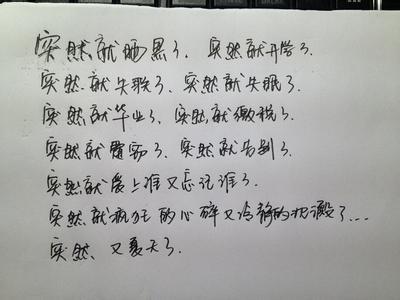 突然就晒黑了、突然就开学了.
突然就失联了、突然就失眠了.
突然就毕业了、突然就缴税了
突然就离别了.
突然就爱上谁又忘记谁了.
突然就疯狂的心碎又冷静的沉澱了...
突然、又夏天了.